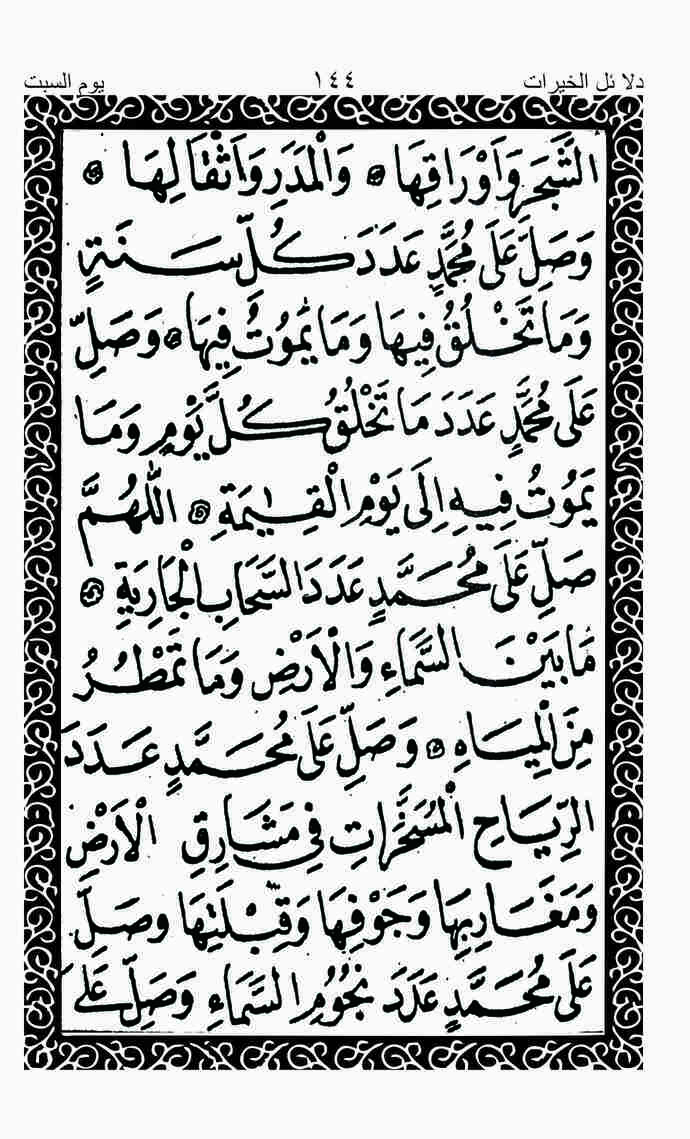 دلائل الخيرات ١٤٤ يوم السبت
الشَّجَرِ وَاَوْرَاقِهَا ۞ وَالْمَدَرِ وَاَثْقَالِهَا ۞
وَصَلِّ عَلَى مُحَمَّدٍ عَدَدَ كُلِّ سَنَةٍ
وَمَا تَخْلُقُ فِيهَا وَمَا يَمُوتُ فِيهَا ۞ وَصَلِّ
عَلَى مُحَمَّدٍ عَدَدَ مَا تَخْلُقُ كُلَّ يَوْمٍ وَمَا
يَمُوتُ فِيهِ اِلَى يَوْمِ الْقِيٰمَةِ ۞ اللّٰهُمَّ
صَلِّ عَلَى مُحَمَّدٍ عَدَدَ السَّحَابِ الْجَارِيَةِ ۞
مَا بَيْنَ السَّمَاءِ وَالْاَرْضِ وَمَا تَمْطُرُ
مِنَ الْمِيَاهِ ۞ وَصَلِّ عَلَى مُحَمَّدٍ عَدَدَ
الرِّيَاحِ الْمُسَخَّرَاتِ فِي مَشَارِقِ الْاَرْضِ
وَمَغَارِبِهَا وَجَوْفِهَا وَقِبْلَتِهَا وَصَلِّ
عَلَى مُحَمَّدٍ عَدَدَ نُجُوُمِ السَّمَاءِ وَصَلِّ عَلَى